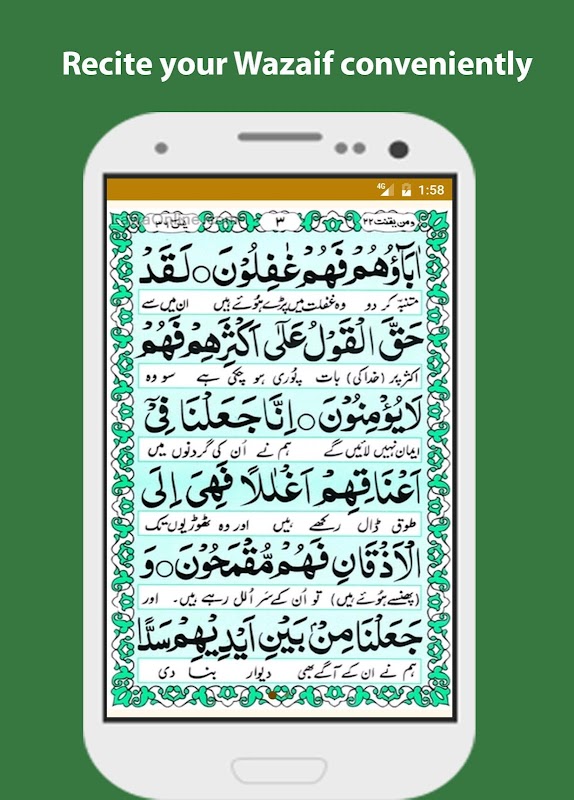 Recite your Wazaif conveniently
4G 1:58
ومن یقنت ۲۲ ۳ یٰس ۳۶
اٰبَآؤُهُمْ فَهُمْ غٰفِلُوْنَ ○ لَقَدْ
متنبہ کر دو وہ غفلت میں پڑے ہوئے ہیں ان میں سے
حَقَّ الْقَوْلُ عَلٰٓى اَكْثَرِهِمْ فَهُمْ
اکثر پر (خدا کی) بات پوری ہو چکی ہے سو وہ
لَا يُؤْمِنُوْنَ ○ اِنَّا جَعَلْنَا فِيْٓ
ایمان نہیں لائیں گے ہم نے اُن کی گردنوں میں
اَعْنَاقِهِمْ اَغْلٰلًا فَهِيَ اِلَى
طوق ڈال رکھے ہیں اور وہ ٹھوڑیوں تک
الْاَذْقَانِ فَهُمْ مُّقْمَحُوْنَ ○ وَ
(پھنسے ہوئے ہیں) تو اُن کے سَر اُلل رہے ہیں۔ اور
جَعَلْنَا مِنْۢ بَيْنِ اَيْدِيْهِمْ سَدًّا
ہم نے ان کے آگے بھی دیوار بنا دی